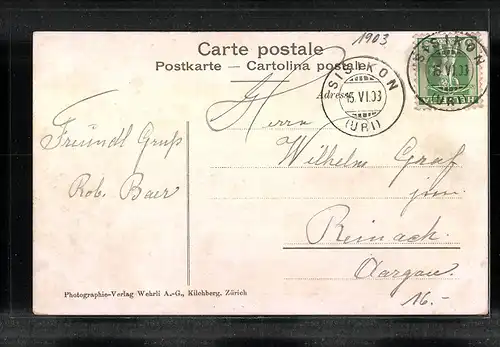 1903
Carte postale
Postkarte – Cartolina postale
Adresse
SISIKON
15 VI.03
(URI)
SISIKON
15 VI.03
(URI)
Herrn
Freundl Gruss
Wilhelm Graf
Rob. Baer
jun.
Reinach.
Aargau.
Photographie-Verlag Wehrli A.-G., Kilchberg, Zürich
16.-